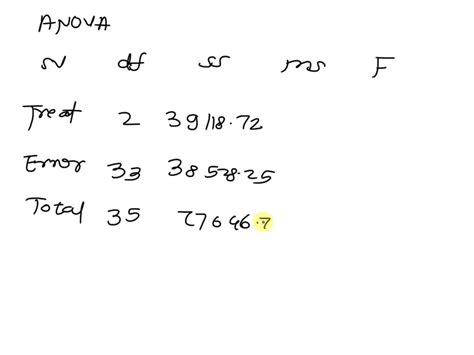 ANOVA
SV df SS MS F
Treat 2 39118.72
Error 33 38528.25
Total 35 77646.7